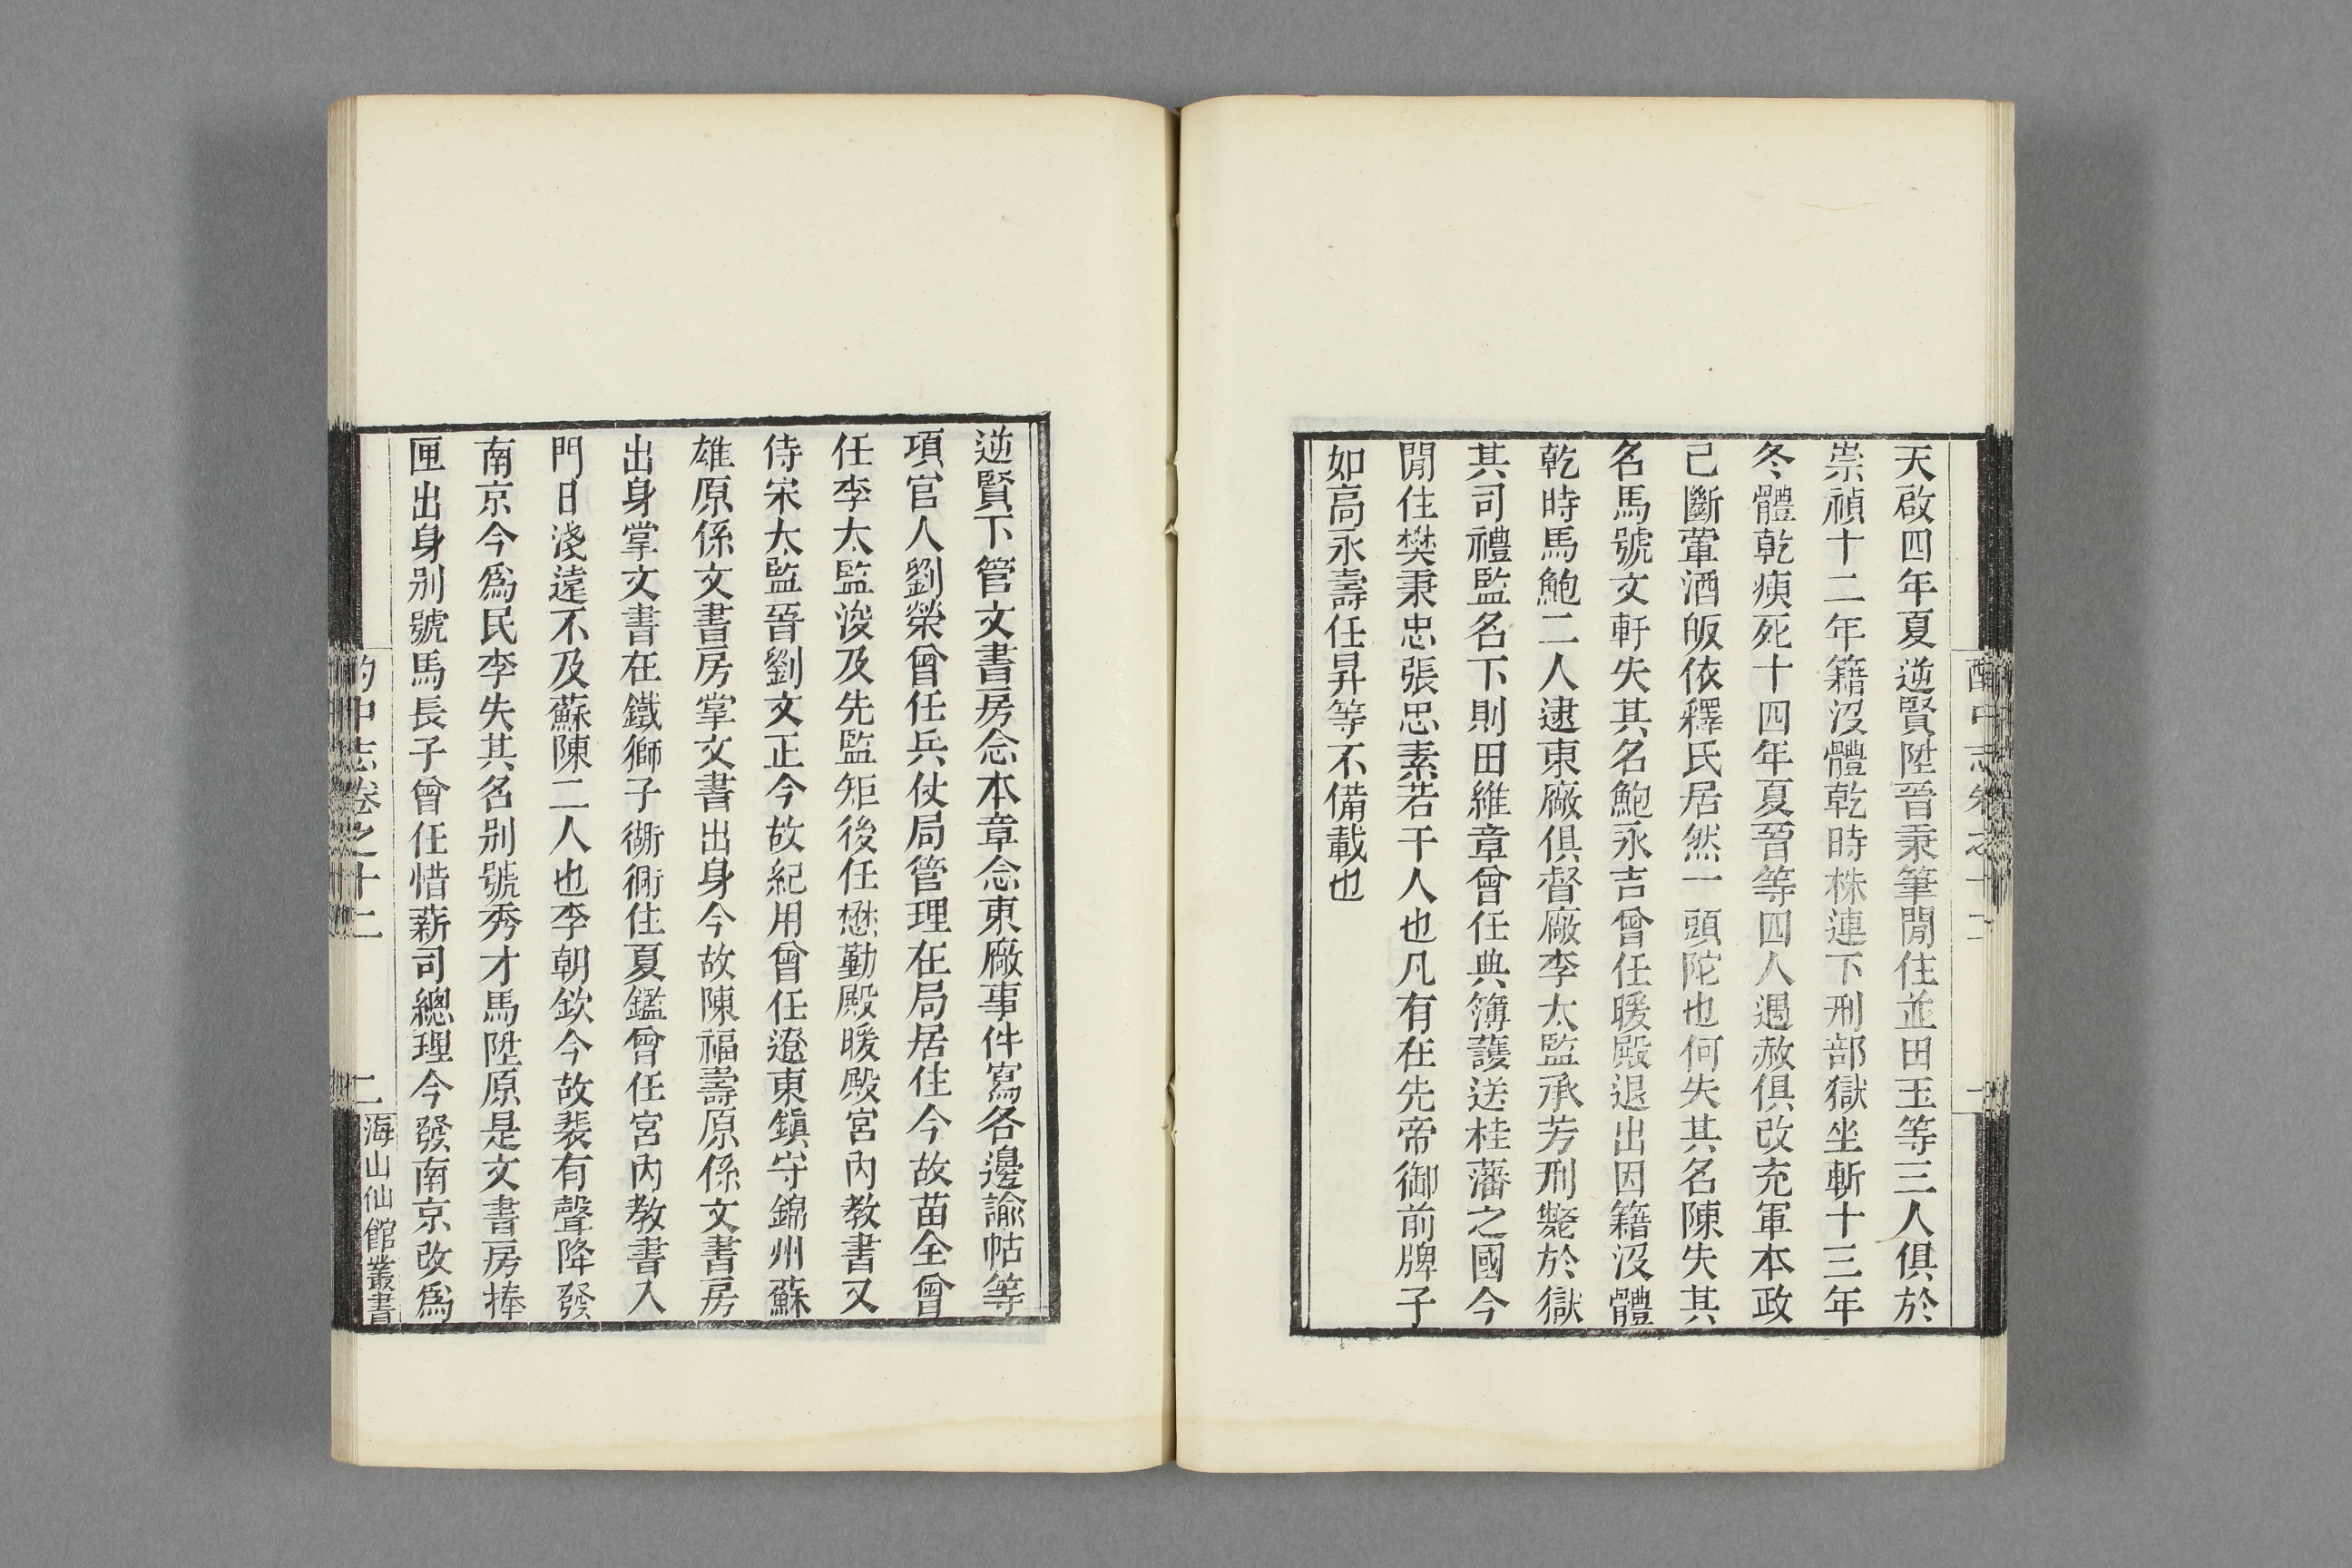 天啟四年夏逆賢陞晉秉筆閒住並田玉等三人俱於
崇禎十二年籍沒體乾時株連下刑部獄坐斬十三年
冬體乾瘐死十四年夏晉等四人遇赦俱改充軍本政
己斷葷酒皈依釋氏居然一頭陀也何失其名陳失其
名馬號文軒失其名鮑永吉曾任暖殿退出因籍沒體
乾時馬鮑二人逮東廠俱督廠李太監承芳刑斃於獄
其司禮監名下則田維章曾任典簿護送桂藩之國今
閒住樊秉忠張忠素若干人也凡有在先帝御前牌子
如高永壽任昇等不備載也
逆賢下管文書房念本章念東廠事件寫各邊諭帖等
項官人劉榮曾任兵仗局管理在局居住今故苗全曾
任李太監浚及先監矩後任懋勤殿暖殿宮內教書又
侍宋太監晉劉文正今故紀用曾任遼東鎮守錦州蘇
雄原係文書房掌文書出身今故陳福壽原係文書房
出身掌文書在鐵獅子衚衕住夏鑑曾任宮內教書入
門日淺遠不及蘇陳二人也李朝欽今故裴有聲降發
南京今爲民李失其名别號秀才馬陞原是文書房捧
匣出身别號馬長子曾任惜薪司總理今發南京改爲
酌中志卷之十二
二
海山仙館叢書